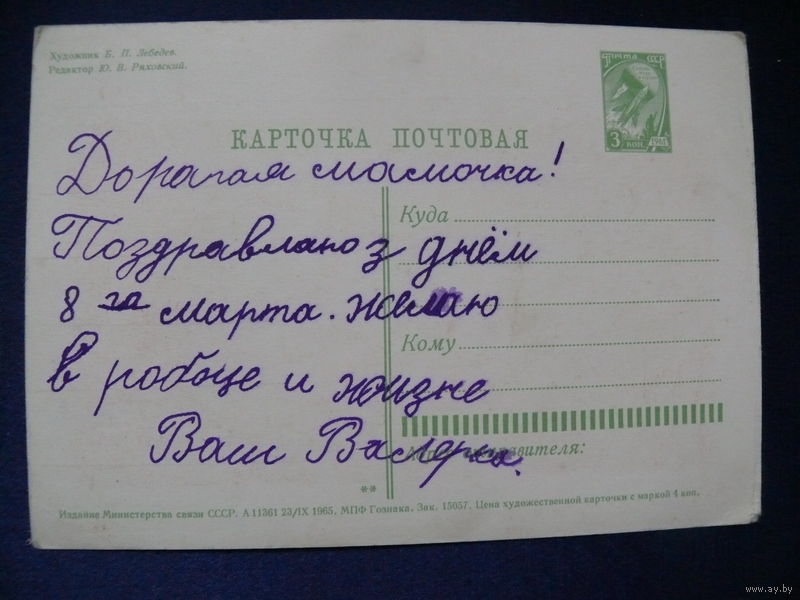 Художник Б. П. Лебедев.
Редактор Ю. В. Ряховский.
Почта СССР
3 КОП. 1961
КАРТОЧКА ПОЧТОВАЯ
Дорагая мамочка!
Куда
Поздравлаю з днём
8 га марта. желаю
Кому
в робоце и жизне
Ваш Валерка.
Адрес отправителя:
**
Издание Министерства связи СССР. А 11361 23/IX 1965. МПФ Гознака. Зак. 15057. Цена художественной карточки с маркой 4 коп.
www.ay.by